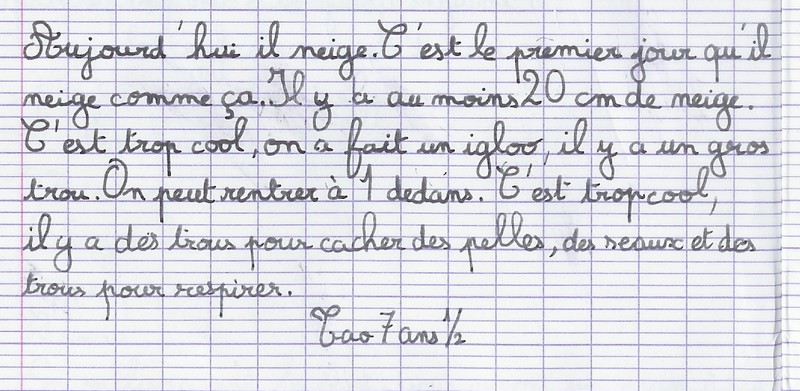 Aujourd'hui il neige. C'est le premier jour qu'il
neige comme ça. Il y a au moins 20 cm de neige.
C'est trop cool, on a fait un igloo, il y a un gros
trou. On peut rentrer à 1 dedans. C'est trop cool,
il y a des trous pour cacher des pelles, des seaux et des
trous pour respirer.
Tao 7 ans ½